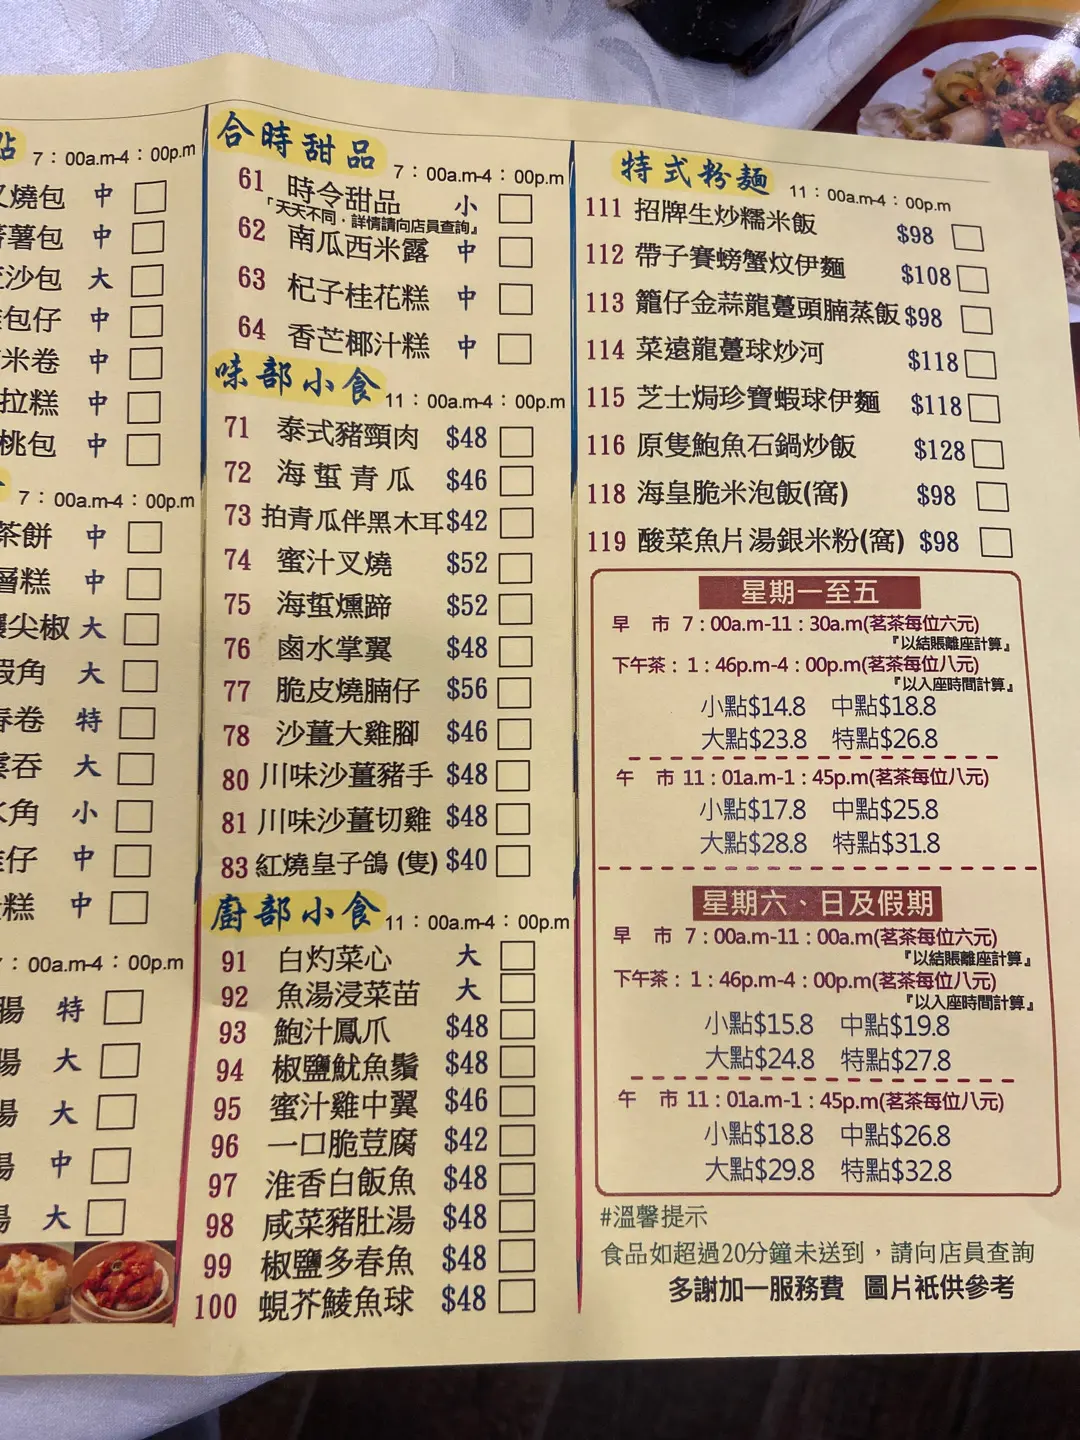 點 7：00a.m-4：00p.m
燒包 中
薯包 中
沙包 大
包仔 中
米卷 中
拉糕 中
桃包 中
7：00a.m-4：00p.m
茶餅 中
層糕 中
尖椒 大
角 大
春卷 特
雲吞 大
水角 小
仔 中
糕 中
：00a.m-4：00p.m
腸 特
腸 大
腸 大
腸 中
腸 大
合時甜品 7：00a.m-4：00p.m
61 時令甜品 小
「天天不同．詳情請向店員查詢」
62 南瓜西米露 中
63 杞子桂花糕 中
64 香芒椰汁糕 中
味部小食 11：00a.m-4：00p.m
71 泰式豬頸肉 $48
72 海蜇青瓜 $46
73 拍青瓜伴黑木耳 $42
74 蜜汁叉燒 $52
75 海蜇燻蹄 $52
76 鹵水掌翼 $48
77 脆皮燒腩仔 $56
78 沙薑大雞腳 $46
80 川味沙薑豬手 $48
81 川味沙薑切雞 $48
83 紅燒皇子鴿 (隻) $40
廚部小食 11：00a.m-4：00p.m
91 白灼菜心 大
92 魚湯浸菜苗 大
93 鮑汁鳳爪 $48
94 椒鹽魷魚鬚 $48
95 蜜汁雞中翼 $46
96 一口脆荳腐 $42
97 淮香白飯魚 $48
98 咸菜豬肚湯 $48
99 椒鹽多春魚 $48
100 蜆芥鯪魚球 $48
特式粉麵 11：00a.m-4：00p.m
111 招牌生炒糯米飯 $98
112 帶子賽螃蟹炆伊麵 $108
113 籠仔金蒜龍躉頭腩蒸飯 $98
114 菜遠龍躉球炒河 $118
115 芝士焗珍寶蝦球伊麵 $118
116 原隻鮑魚石鍋炒飯 $128
118 海皇脆米泡飯(窩) $98
119 酸菜魚片湯銀米粉(窩) $98
星期一至五
早　市 7：00a.m-11：30a.m(茗茶每位六元)
『以結賬離座計算』
下午茶：1：46p.m-4：00p.m(茗茶每位八元)
『以入座時間計算』
小點$14.8 中點$18.8
大點$23.8 特點$26.8
午　市 11：01a.m-1：45p.m(茗茶每位八元)
小點$17.8 中點$25.8
大點$28.8 特點$31.8
星期六、日及假期
早　市 7：00a.m-11：00a.m(茗茶每位六元)
『以結賬離座計算』
下午茶：1：46p.m-4：00p.m(茗茶每位八元)
『以入座時間計算』
小點$15.8 中點$19.8
大點$24.8 特點$27.8
午　市 11：01a.m-1：45p.m(茗茶每位八元)
小點$18.8 中點$26.8
大點$29.8 特點$32.8
#溫馨提示
食品如超過20分鐘未送到，請向店員查詢
多謝加一服務費 圖片衹供參考